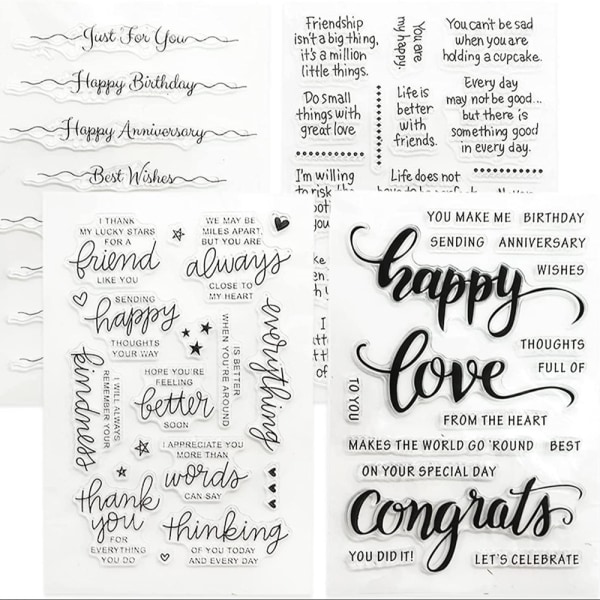 Just For You
Happy Birthday
Happy Anniversary
Best Wishes
Friendship
isn't a big thing,
it's a million
little things.
You are
my happy.
You can't be sad
when you are
holding a cupcake.
Do small
things with
great love
Life is
better
with
friends.
Every day
may not be good...
but there is
something good
in every day.
I'm willing
to risk
Life does not
I THANK
MY LUCKY STARS
FOR A
friend
LIKE YOU
WE MAY BE
MILES APART,
BUT YOU ARE
always
CLOSE TO
MY HEART
SENDING
happy
THOUGHTS
YOUR WAY
everything
IS BETTER
WHEN YOU'RE AROUND
kindness
I WILL ALWAYS
REMEMBER YOUR
HOPE YOU'RE
FEELING
better
SOON
I APPRECIATE YOU
MORE THAN
words
CAN SAY
thank
you
FOR
EVERYTHING
YOU DO
thinking
OF YOU TODAY
AND EVERY DAY
YOU MAKE ME BIRTHDAY
SENDING ANNIVERSARY
happy
WISHES
THOUGHTS
FULL OF
love
TO YOU
FROM THE HEART
MAKES THE WORLD GO 'ROUND BEST
ON YOUR SPECIAL DAY
congrats
YOU DID IT! LET'S CELEBRATE